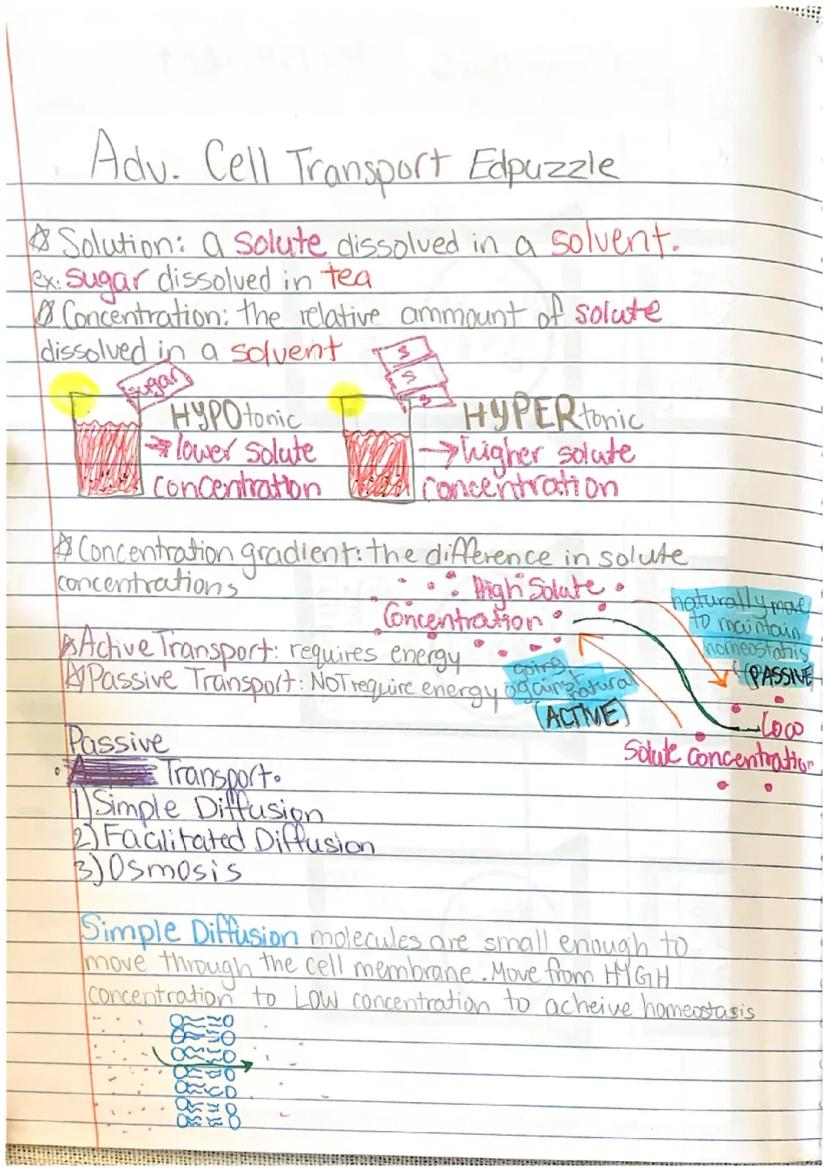 Adv. Cell Transport Edpuzzle
Solution: a solute dissolved in a solvent.
ex: sugar dissolved in tea
Concentration: the relative ammount of solute
dissolved in a solvent
sugar
S
S
S
HYPOtonic
→ lower solute
concentration
HYPERtonic
→ higher solute
concentration
Concentration gradient: the difference in solute
concentrations
High Solute
Concentration
naturally move
to maintain
homeostatis
(PASSIVE)
Active Transport: requires energy
Passive Transport: NOT require energy
going
against natural
(ACTIVE)
Low
Solute concentration
Passive
Transport.
1) Simple Diffusion
2) Facilitated Diffusion
3) Osmosis
Simple Diffusion molecules are small enough to
move through the cell membrane. Move from HIGH
concentration to Low concentration to acheive homeostasis